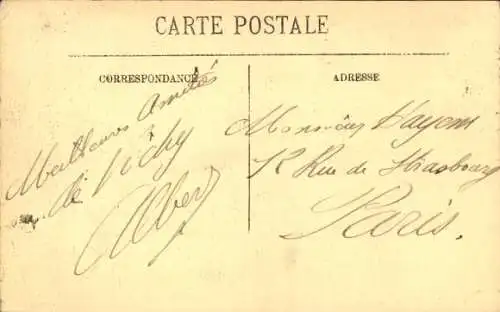 CARTE POSTALE
CORRESPONDANCE
Meilleures Amitiés
de Vichy
Albert
ADRESSE
Monsieur Dayoni
12 Rue de Strasbourg
Paris.